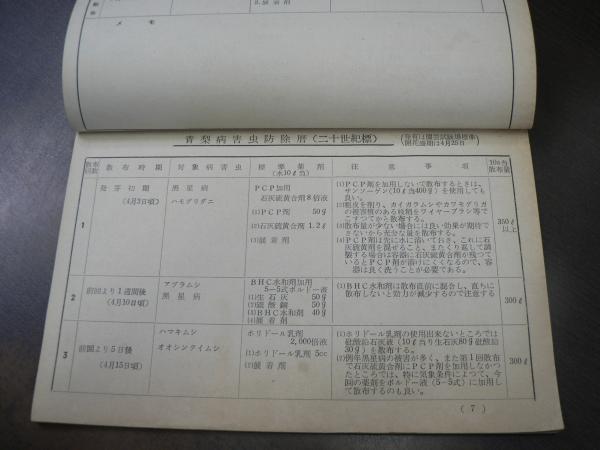 メモ
青梨病害虫防除暦(二十世紀標)
開花盛期は4月25日
散布回数 散布時期 対象病害虫 標準薬剤(水10ℓ当) 注意事項 10a当散布量
1
発芽初期
(4月3日頃)
黒星病
ハモグリダニ
PCP加用
石灰硫黄合剤8倍液
(1)PCP剤 50g
(2)石灰硫黄合剤 1.2ℓ
(3)展着剤
(1)PCP剤を加用しないで散布するときは、
サンソーゲン(10ℓ当り400g)を使用しても
良い。
(2)粗皮を削り、カイガラムシやカワモグリガ
の被害痕のある枝幹をワイヤーブラシ等で
こすつてから散布する。
(3)散布量が少ない場合には良い効果が期待で
きないから充分な量を散布する。
(4)PCP剤は先に水に溶いておき、これに石
灰硫黄合剤を混ぜること、またくり返して調
製する場合は容器に石灰硫黄合剤が残つて
いるとPCP剤が溶けにくくなるので、容
器は良く洗うことが必要である。
350ℓ
以上
2
前回より1週間後
(4月10日頃)
アブラムシ
黒星病
BHC水和剤加用
5-5式ボルドー液
(1)生石灰 50g
(2)硫酸銅 50g
(3)BHC水和剤 40g
(4)展着剤
(1)BHC水和剤は散布直前に混合し、直ちに
散布しないと効力が減少するので注意する
300ℓ
3
前回より5日後
(4月15日頃)
ハマキムシ
オオシンクイムシ
ホリドール乳剤
2,000倍液
(1)ホリドール乳剤 5cc
(2)展着剤
(1)ホリドール乳剤の使用出来ないところでは
砒酸鉛石灰液(10ℓ当り生石灰80g砒酸鉛
30g)を散布する。
(2)例年黒星病の被害が多く、また第1回散布
で石灰硫黄合剤にPCP剤を加用しなかつ
たところでは、特に気象条件によつて、今
回の薬剤をボルドー液(5-5式)に加用し
て散布するのも良い。
300ℓ
(7)